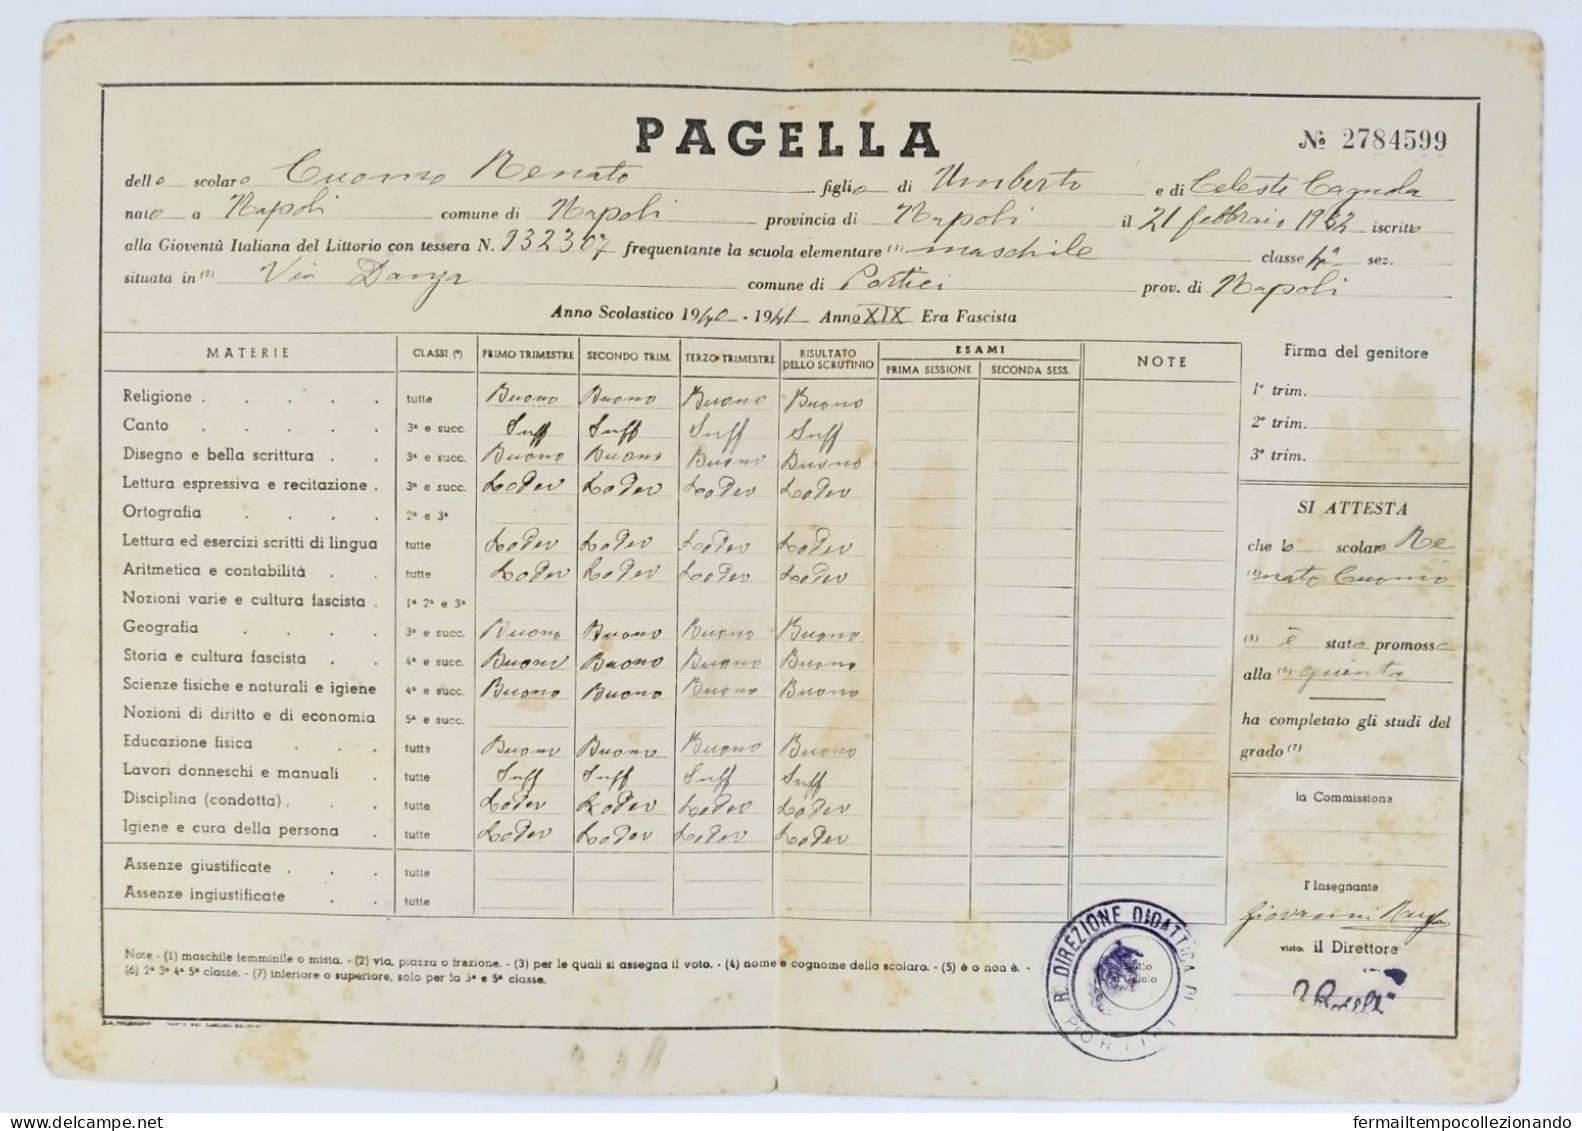 PAGELLA
№ 2784599
dello scolaro Cuomo Renato figlio di Umberto e di Celeste Cagnola
nato a Napoli comune di Napoli provincia di Napoli il 21 febbraio 1932 iscritto
alla Gioventù Italiana del Littorio con tessera N. 932307 frequentante la scuola elementare (1) maschile classe 4ª sez.
situata in (2) Via Danza comune di Portici prov. di Napoli
Anno Scolastico 1940 - 1941 Anno XIX Era Fascista
MATERIE CLASSI (*) PRIMO TRIMESTRE SECONDO TRIM. TERZO TRIMESTRE RISULTATO DELLO SCRUTINIO ESAMI NOTE
PRIMA SESSIONE SECONDA SESS.
Religione tutte Buono Buono Buono Buono
Canto 3ª e succ. Suff Suff Suff Suff
Disegno e bella scrittura 3ª e succ. Buono Buono Buono Buono
Lettura espressiva e recitazione 3ª e succ. Lodev Lodev Lodev Lodev
Ortografia 2ª e 3ª
Lettura ed esercizi scritti di lingua tutte Lodev Lodev Lodev Lodev
Aritmetica e contabilità tutte Lodev Lodev Lodev Lodev
Nozioni varie e cultura fascista 1ª 2ª e 3ª
Geografia 3ª e succ. Buono Buono Buono Buono
Storia e cultura fascista 4ª e succ. Buono Buono Buono Buono
Scienze fisiche e naturali e igiene 4ª e succ. Buono Buono Buono Buono
Nozioni di diritto e di economia 5ª e succ.
Educazione fisica tutte Buono Buono Buono Buono
Lavori donneschi e manuali tutte Suff Suff Suff Suff
Disciplina (condotta) tutte Lodev Lodev Lodev Lodev
Igiene e cura della persona tutte Lodev Lodev Lodev Lodev
Assenze giustificate tutte
Assenze ingiustificate tutte
Firma del genitore
1º trim.
2º trim.
3º trim.
SI ATTESTA
che lo scolaro Re
(4) nato Cuomo
(5) è stato promosso
alla (6) quinta
ha completato gli studi del
grado (7)
la Commissione
l'Insegnante
Giovanni
visto: il Direttore
Note - (1) maschile femminile o mista. - (2) via, piazza o frazione. - (3) per le quali si assegna il voto. - (4) nome e cognome dello scolaro. - (5) è o non è. -
(6) 2ª 3ª 4ª 5ª classe. - (7) inferiore o superiore, solo per la 3ª e 5ª classe.
R. DIREZIONE DIDATTICA DI
PORTICI
fermailtempocollezionando